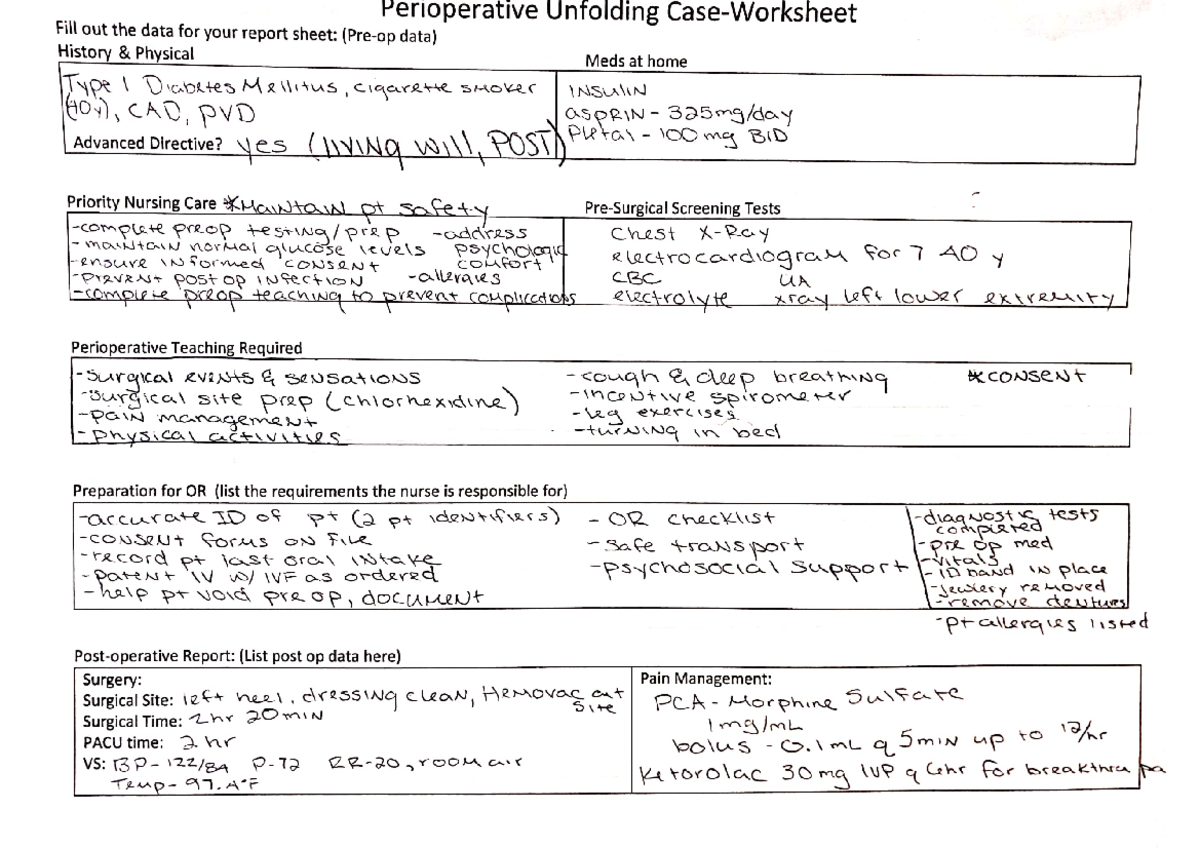 Perioperative Unfolding Case-Worksheet
Fill out the data for your report sheet: (Pre-op data)
History & Physical
Meds at home
Type 1 Diabetes Mellitus, cigarette smoker
(40y), CAD, PVD
Advanced Directive? yes (living will, POST)
INSULIN
aspRIN - 325mg/day
Pletal - 100 mg BID
Priority Nursing Care *Maintain pt safety
-complete preop testing/prep -address
-maintain normal glucose levels psychologic
-ensure informed consent comfort
-prevent post op infection -allergies
-complete preop teaching to prevent complications
Pre-Surgical Screening Tests
Chest X-Ray
electrocardiogram for 7 40 y
CBC UA
electrolyte xray left lower extremity
Perioperative Teaching Required
-surgical events & sensations
-surgical site prep (chlorhexidine)
-pain management
-physical activities
-cough & deep breathing *CONSENT
-incentive spirometer
-leg exercises
-turning in bed
Preparation for OR (list the requirements the nurse is responsible for)
-accurate ID of pt (2 pt identifiers)
-consent forms on file
-record pt last oral intake
-patent IV w/ IVF as ordered
-help pt void preop, document
- OR checklist
-safe transport
-psychosocial support
-diagnostic tests
completed
-pre op med
-vitals
-ID band in place
-jewlery removed
-remove dentures
-pt allergies listed
Post-operative Report: (List post op data here)
Surgery:
Surgical Site: left heel, dressing clean, Hemovac at
site
Surgical Time: 2hr 20min
PACU time: 2 hr
VS: BP-122/84 P-72 RR-20, room air
Temp- 97.4°F
Pain Management:
PCA - Morphine Sulfate
1mg/mL
bolus - 0.1mL q 5min up to 12/hr
Ketorolac 30mg IVP q 6hr for breakthru pa